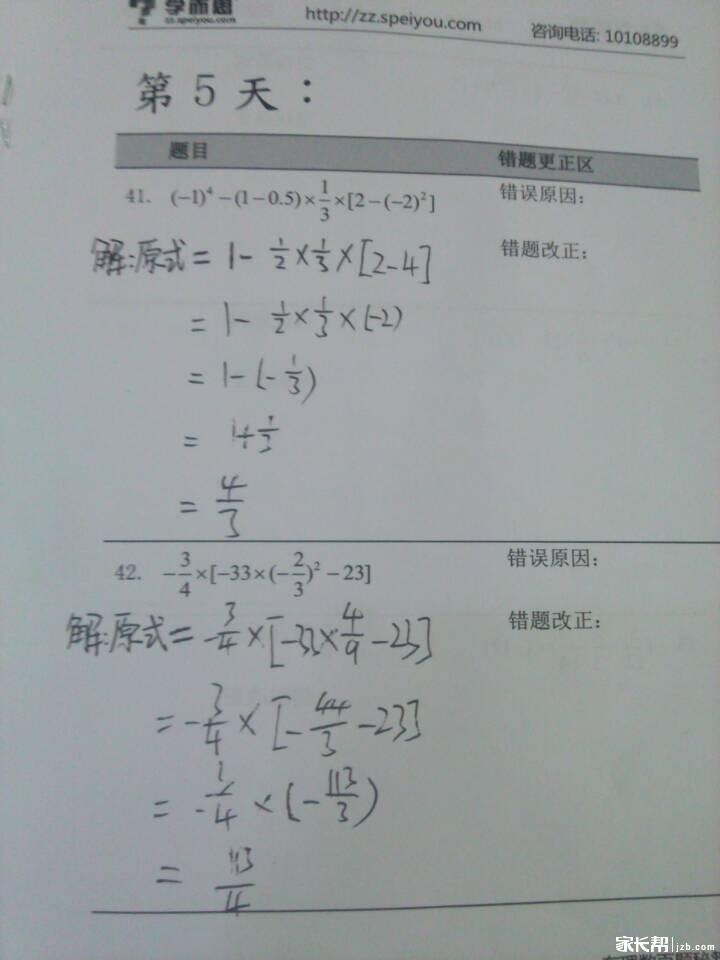 学而思
zz.speiyou.com
http://zz.speiyou.com
咨询电话: 10108899
第 5 天：
题目 错题更正区
41. (−1)⁴−(1−0.5)×1/3×[2−(−2)²] 错误原因：
解:原式= 1− 1/2×1/3×[2−4] 错题改正：
= 1− 1/2×1/3×(−2)
= 1−(−1/3)
= 1+1/3
= 4/3
42. −3/4×[−33×(−2/3)²−23] 错误原因：
解:原式= −3/4×[−33×4/9−23] 错题改正：
=−3/4×[−44/3−23]
= −3/4×(−113/3)
= 113/4
家长帮 jzb.com